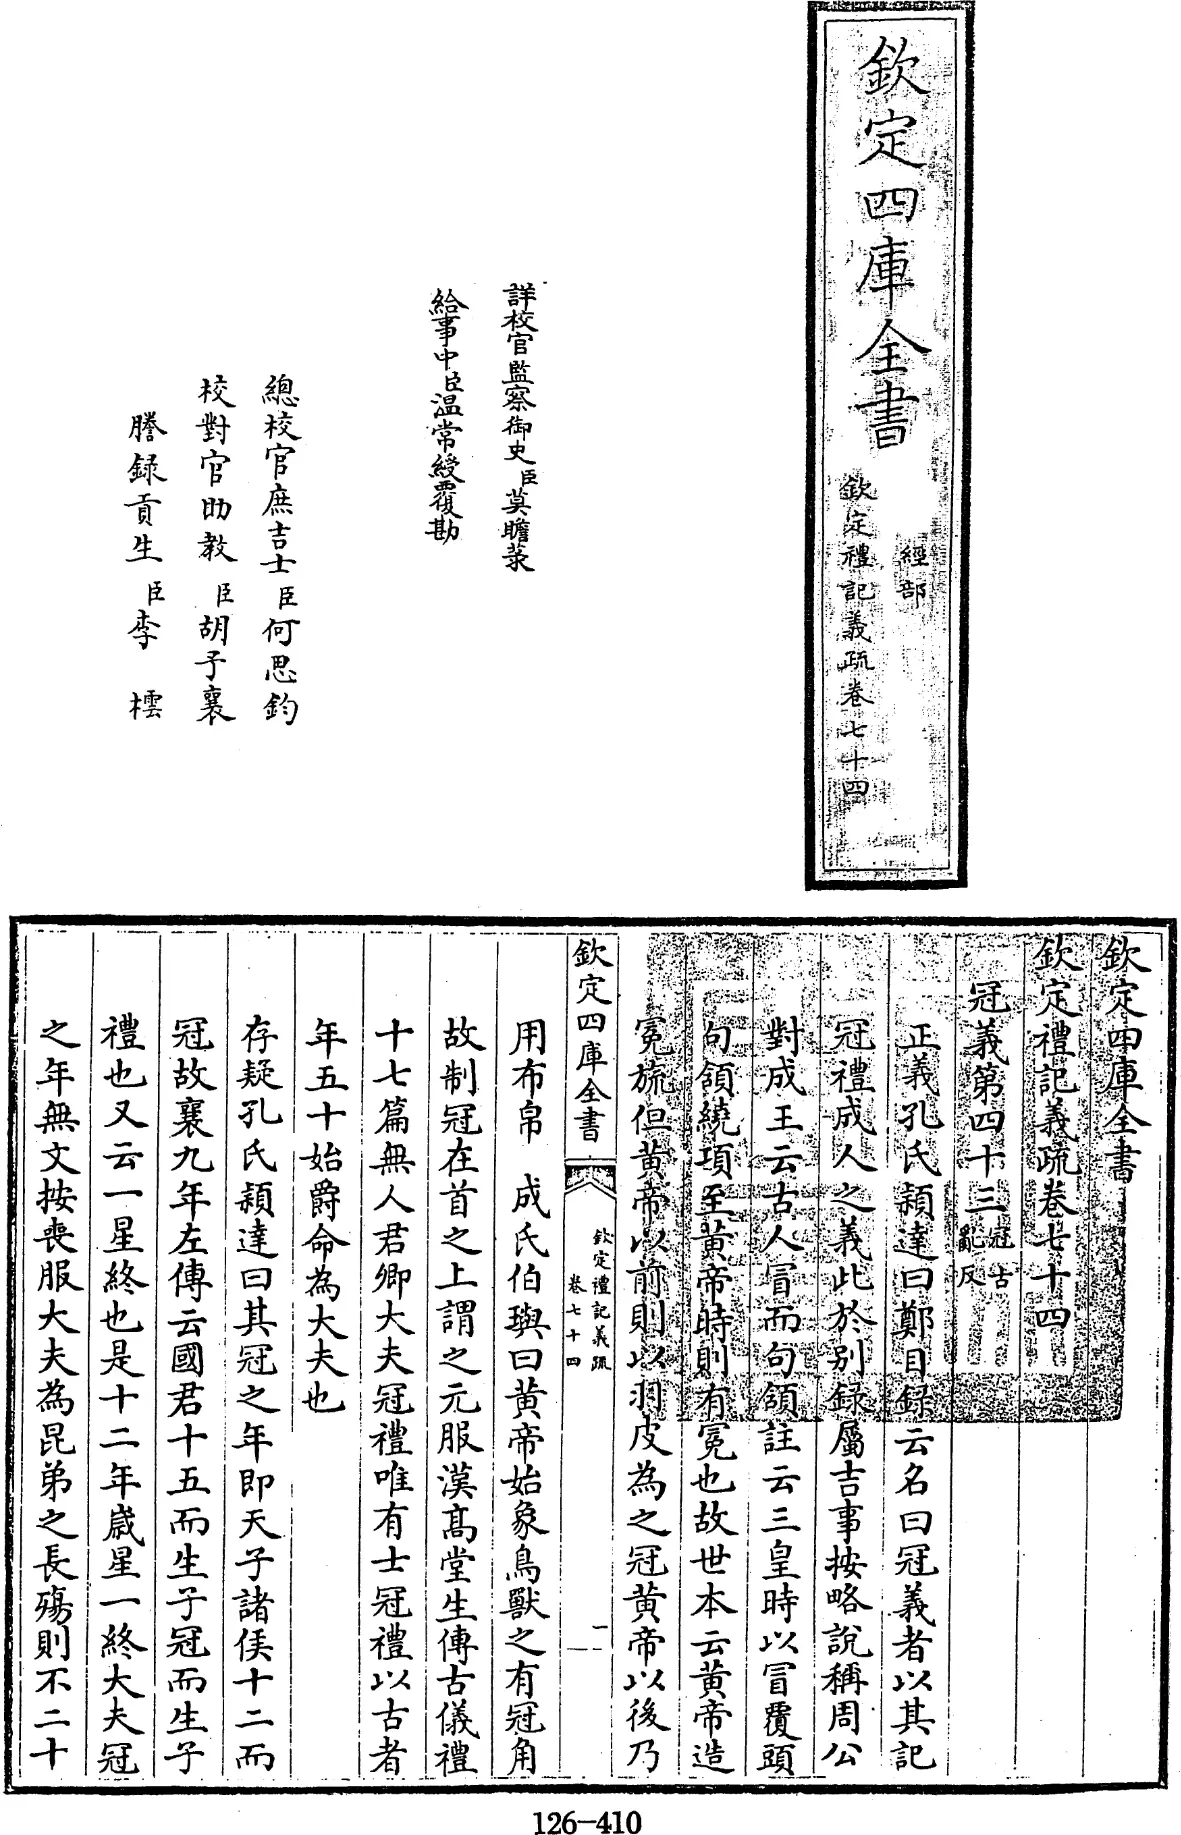 欽定四庫全書
經部
欽定禮記義疏卷七十四
詳校官監察御史臣莫瞻菉
給事中臣温常綬覆勘
總校官庶吉士臣何思鈞
校對官助教臣胡予襄
謄録貢生臣李橒
欽定四庫全書
欽定禮記義疏卷七十四
冠義第四十三冠古亂反
正義孔氏穎達曰鄭目録云名曰冠義者以其記
冠禮成人之義此於别録屬吉事按略說稱周公
對成王云古人冒而句領註云三皇時以冒覆頭
句領繞項至黄帝時則有冕也故世本云黄帝造
冕旒但黄帝以前則以羽皮為之冠黄帝以後乃
欽定四庫全書
欽定禮記義疏
卷七十四
一
用布帛 成氏伯璵曰黄帝始象鳥獸之有冠角
故制冠在首之上謂之元服漢髙堂生傳古儀禮
十七篇無人君卿大夫冠禮唯有士冠禮以古者
年五十始爵命為大夫也
存疑孔氏穎達曰其冠之年即天子諸侯十二而
冠故襄九年左傳云國君十五而生子冠而生子
禮也又云一星終也是十二年嵗星一終大夫冠
之年無文按喪服大夫為昆弟之長殤則不二十
126-410